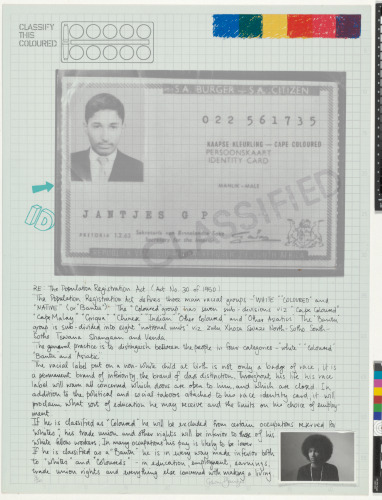 CLASSIFY
THIS
COLOURED
S.A. BURGER - S.A. CITIZEN
022 561735
KAAPSE KLEURLING - CAPE COLOURED
PERSOONSKAART
IDENTITY CARD
MANLIK - MALE
JANTJES G P
CLASSIFIED
PRETORIA
Sekretaris van Binnelandse Sake
Secretary for the Interior
ID
RE The Population Registration Act (Act No 30 of 1950)
The Population Registration Act defines three main racial groups - "WHITE" "COLOURED" and
"NATIVE" (or "Bantu"). The "Coloured" group has seven sub-divisions viz "Cape Coloured"
"Cape Malay" "Griqua" "Chinese" "Indian" "Other Coloured" and "Other Asiatic". The "Bantu"
group is sub-divided into eight "national units" viz. Zulu Xhosa Swazi North-Sotho South
Sotho Tswana Shangaan and Venda
The general practice is to distinguish between the people in four categories - "white" "Coloured"
"Bantu" and Asiatic
The racial label put on a non-white child at birth is not only a badge of race, it is
a permanent brand of inferiority, the brand of class distinction. Throughout his life his race
label will warn all concerned which doors are open to him, and which are closed. In
addition to the political and social taboos attached to his race identity card, it will
proclaim what sort of education he may receive and the limits on his choice of employ
ment.
If he is classified as "Coloured" he will be excluded from certain occupations reserved for
"Whites", his trade union and other rights will be inferior to those of his
White fellow workers. In many occupations his pay is likely to be lower
If he is classified as a "Bantu" he is in every way made inferior both
to "whites" and "coloureds" - in education, employment, earnings,
trade union rights and everything else concerned with making a living